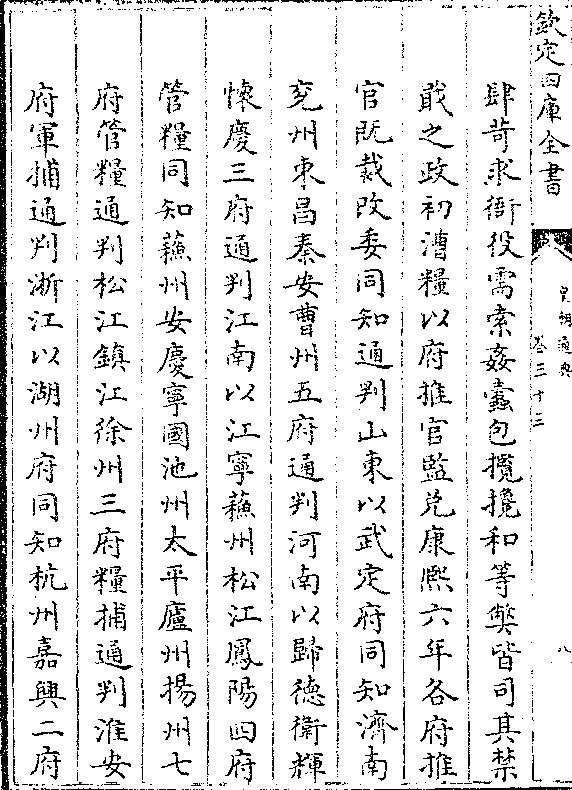 欽定四庫全書
皇朝通典
卷三十三
八
肆苛求衙役需索姦蠹包攬攙和等弊皆司其禁
戢之政初漕糧以府推官監兌康熙六年各府推
官既裁改委同知通判山東以武定府同知濟南
兗州東昌泰安曹州五府通判河南以歸德衛輝
懷慶三府通判江南以江寧蘇州松江鳳陽四府
管糧同知蘇州安慶寧國池州太平廬州揚州七
府管糧通判松江鎮江徐州三府糧捕通判淮安
府軍捕通判浙江以湖州府同知杭州嘉興二府